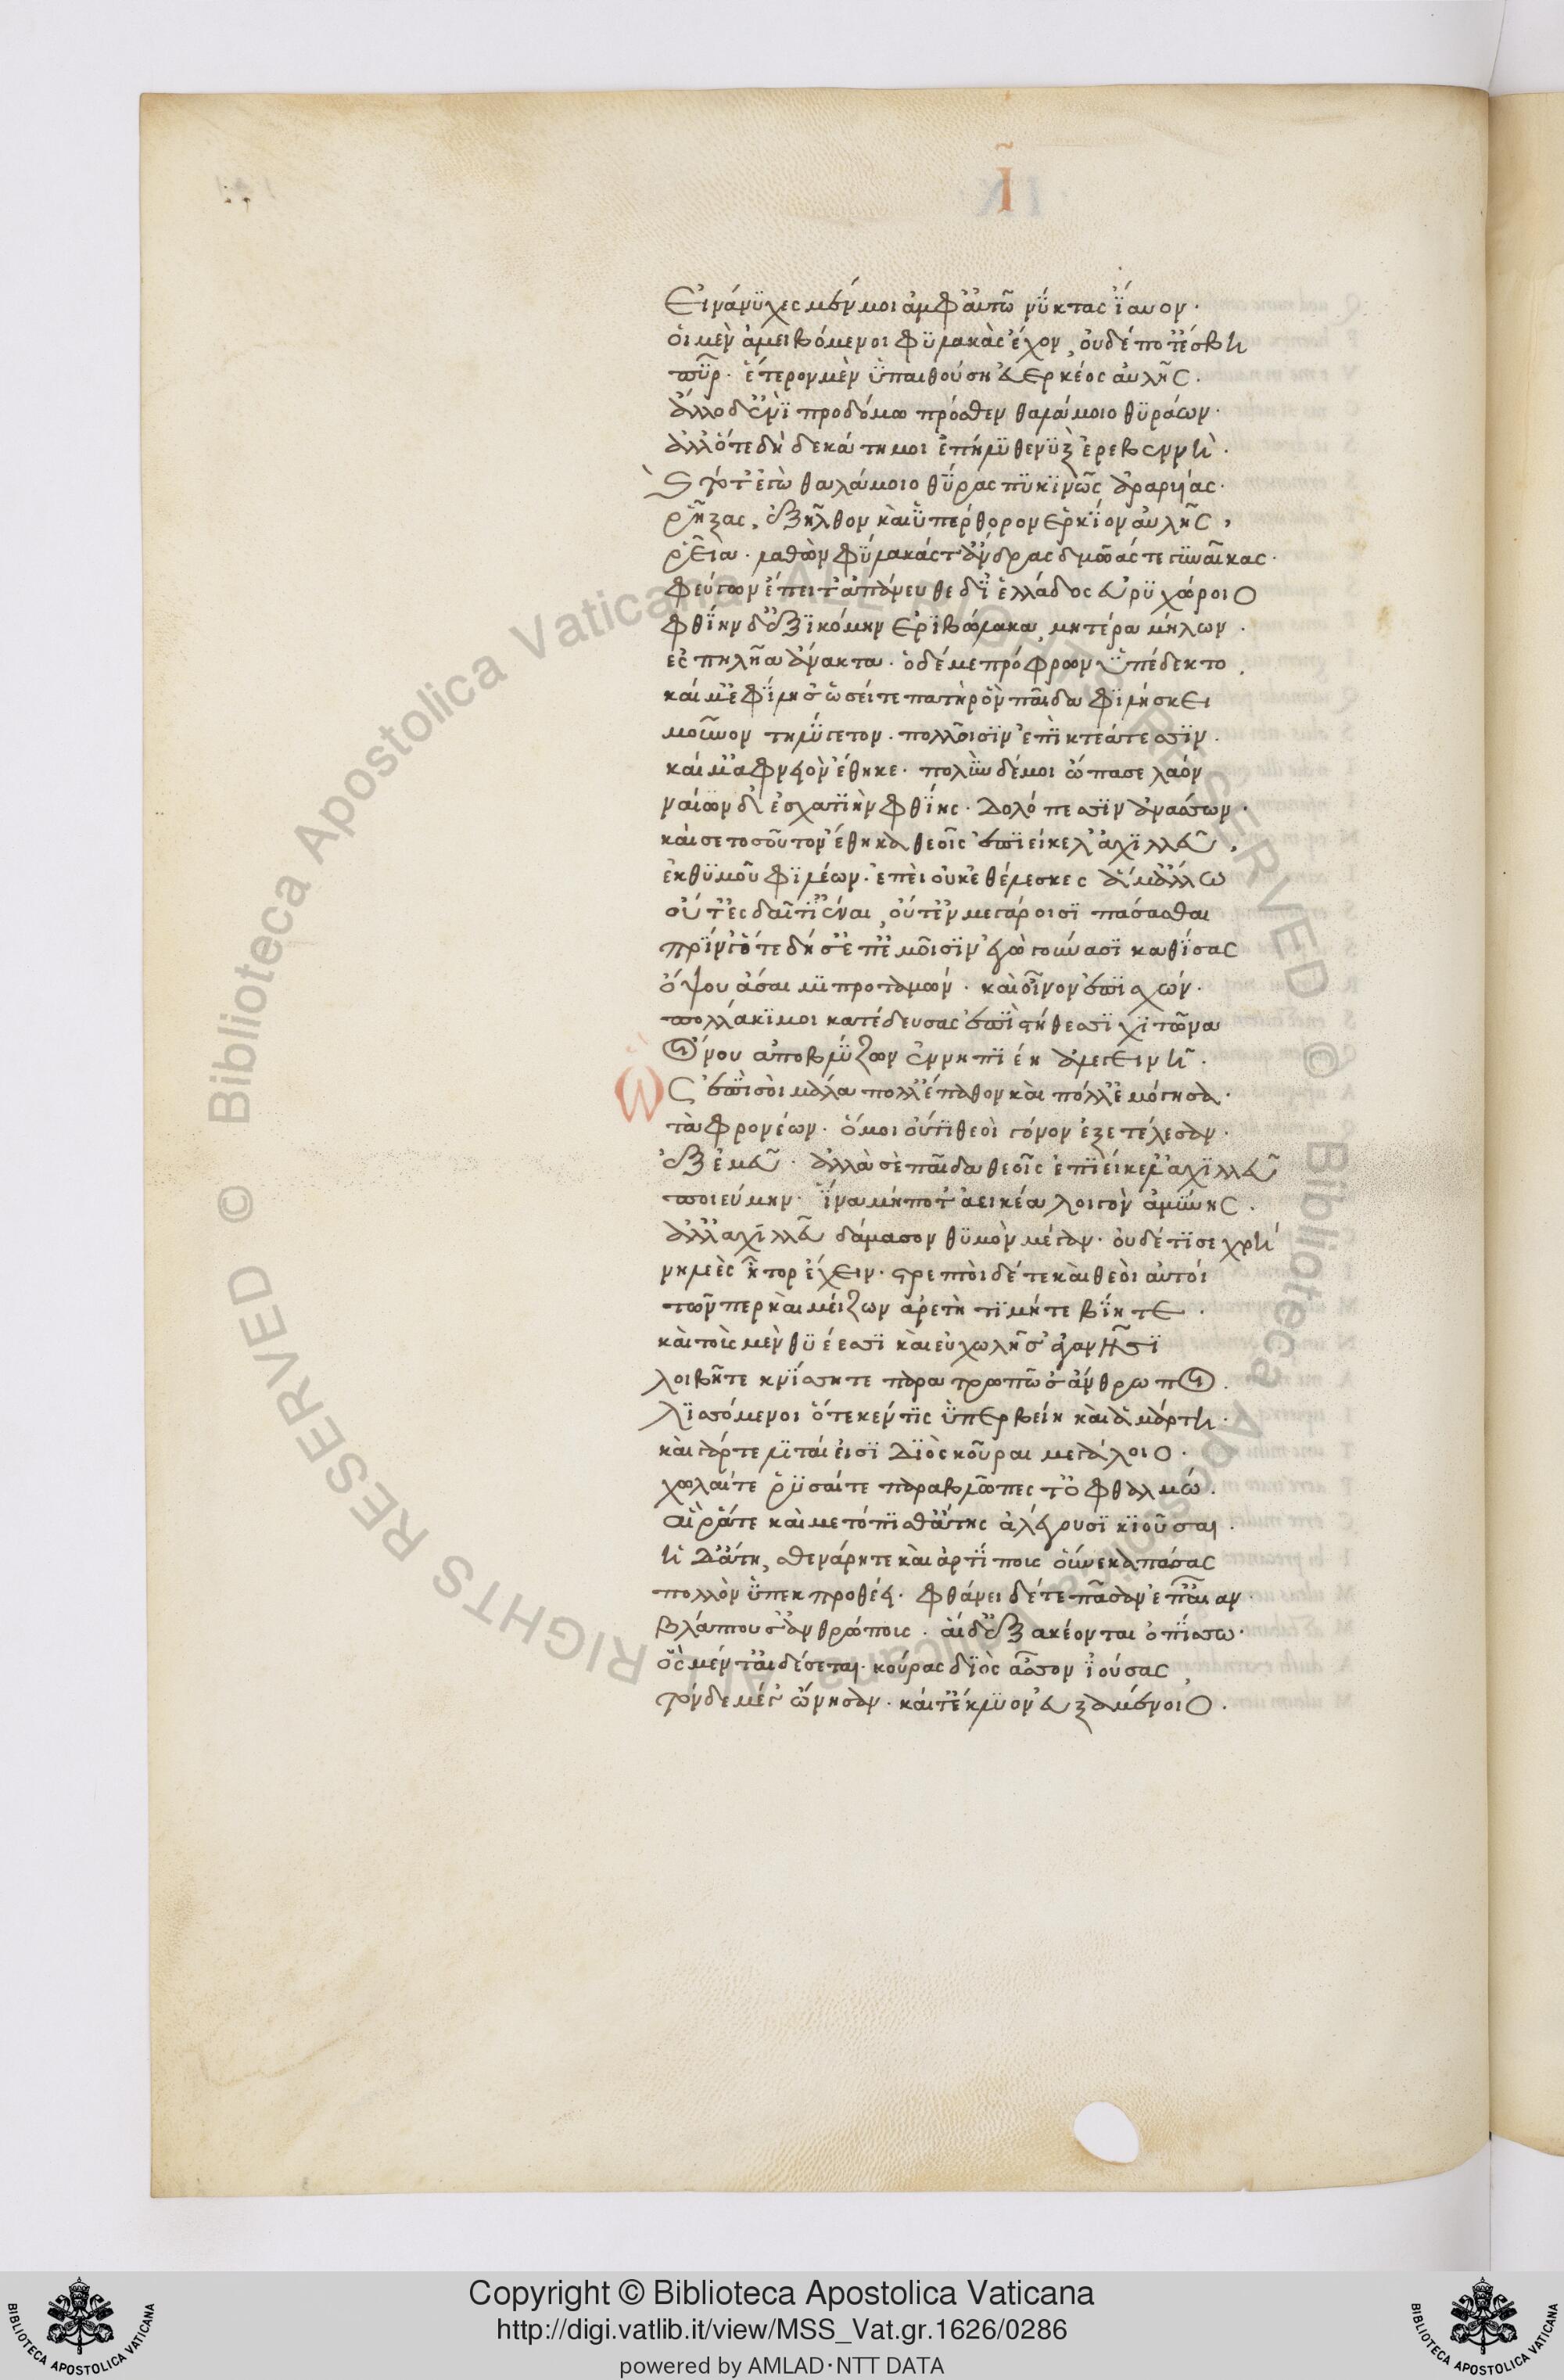 Ι
Εἰνάνϋχες μέν μοι ἀμφ' ἀυτῶ νΰκτας ἴαυον·
ὁι μὲν ἀμειβόμενοι φϋλακὰς ἔχον, ὀυδέποτ' ἔσβη
πῦρ· ἕτερον μὲν ὑπαιθούση ἐυερκέος ἀυλῆς.
ἄλλο δ' ἐνὶ προδόμω πρόσθεν θαλάμοιο θϋράων·
ἀλλ' ὅτε δὴ δεκάτη μοι ἐπήλϋθε νὺξ ἐρεβεννὴ.
ϗ τότ' ἐγὼ θαλάμοιο θύρας πϋκϊνῶς ἀραρυίας·
ῥῆξας, ἐξῆλθον καὶ ὑπέρθορον ἑρκΐον ἀυλῆς,
ῥεῖα· λαθὼν φύλακάς τ' ἄνδρας δμωάς τε γυναῖκας.
φεύγων ἔπειτ' ἀπάνευθε δϊ' ἑλλάδος ἐυρϋχώροιο
φθΐην δ' ἐξϊκόμην ἐρϊβώλακα, μητέρα μήλων.
ἐς πηλῆα ἄνακτα· ὁ δέ με πρόφρων ὑπέδεκτο,
καί μ' ἐφΐλησ' ὡσείτε πατὴρ ὃν παῖδα φϊλήσκει
μοῦνον τηλΰγετον· πολλοῖσϊν ἐπὶ κτεάτεσϊν.
καί μ' ἀφνειὸν ἔθηκε· πολὺν δέ μοι ὤπασε λαόν
ναίων δ' ἐσχατϊὴν φθΐης· Δολόπεσϊν ἀνάσσων·
καί σε τοσοῦτον ἔθηκα θεοῖς ἐπιείκελ' ἀχϊλλεῦ,
ἐκ θϋμοῦ φϊλέων· ἐπεὶ ὀυκ ἐθέλεσκες ἅμ' ἄλλω
ὀύτ' ἐς δαῖτ' ἰέναι, ὀύτ' ἐν μεγάροισϊ πάσασθαι
πρΐν γ' ὅτε δή σ' ἐπ' ἐμοῖσϊν ἐγὼ γούνασϊ καθΐσας
ὄψου ἄσαιμϊ προταμών· καὶ οἶνον ἐπισχών.
πολλάκϊ μοι κατέδευσας ἐπὶ στήθεσϊ χϊτῶνα
οἴνου ἀποβλΰζων ἐν νηπϊέη ἀλεγεινῆ.
Ὣς ἐπὶ σοὶ μάλα πολλ' ἔπαθον καὶ πόλλ' ἐμόγησα·
τὰ φρονέων· ὅ μοι ὀύτϊ θεοὶ γόνον ἐξετέλεσαν·
ἐξ ἐμεῦ· ἀλλὰ σὲ παῖδα θεοῖς ἐπϊείκελ' ἀχϊλλεῦ
ποιεύμην· ἵνα μήποτ' ἀεικέα λοιγὸν ἀμύνης.
ἀλλ' ἀχϊλλεῦ δάμασον θϋμὸν μέγαν· ὀυδέ τϊ σε χρή
νηλεὲς ἦτορ ἔχειν· στρεπτοὶ δέ τε καὶ θεοὶ ἀυτοί
τῶνπερ καὶ μείζων ἀρετὴ τϊμήτε βΐητε.
καὶ τοὺς μὲν θϋέεσϊ καὶ ἐυχωλῆσ' ἀγανῆσϊ
λοιβῆτε κνΐσητε παρατρωπῶσ' ἄνθρωποι.
λϊσσόμενοι ὅτε κέν τϊς ὑπερβείη καὶ ἁμάρτη·
καὶ γάρ τε λϊταί ἐισϊ Δϊὸς κοῦραι μεγάλοιο.
χωλαίτε ῥϋσαίτε παραβλῶπες τ' ὀφθαλμώ.
αἵ ῥά τε καὶ μετόπϊσθ' ἄτης ἀλέγουσϊ κϊοῦσαι.
ἡ Δ' ἄτη, σθεναρήτε καὶ ἀρτΐπους ὁύνεκα πάσας
πολλὸν ὑπεκπροθέει· φθάνει δέ τε πᾶσαν ἐπ' αἶαν
βλάπτουσ' ἀνθρώπους· ἁι δ' ἐξακέονται ὀπίσσω·
ὃς μέν τ' ἀιδέσεται· κούρας δϊὸς ἆσσον ϊούσας,
τόνδε μέγ' ὤνησαν· καί τ' ἔκλϋον ἐυξαμένοιο.
Copyright © Biblioteca Apostolica Vaticana
http://digi.vatlib.it/view/MSS_Vat.gr.1626/0286
powered by AMLAD·NTT DATA